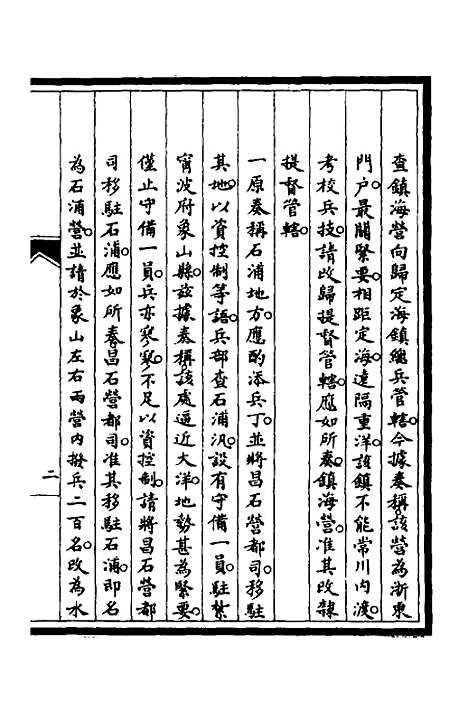 查鎮海營向歸定海鎮總兵管轄。今據奏稱。該營為浙東
門户。最關緊要。相距定海遠隔重洋。該鎮不能常川內渡。
考校兵技。請改歸提督管轄。應如所奏。鎮海營。准其改隸
提督管轄。
一原奏稱石浦地方。應酌添兵丁。並將昌石營都司。移駐
其地。以資控制等語。兵部查石浦汛。設有守備一員。駐紮
甯波府象山縣。茲據奏稱。該處逼近大洋。地勢甚為緊要。
僅止守備一員。兵亦寥寥。不足以資控制。請將昌石營都
司移駐石浦。應如所奏。昌石營都司。准其移駐石浦。即名
為石浦營。並請於象山左右兩營內撥兵二百名。改為水
二